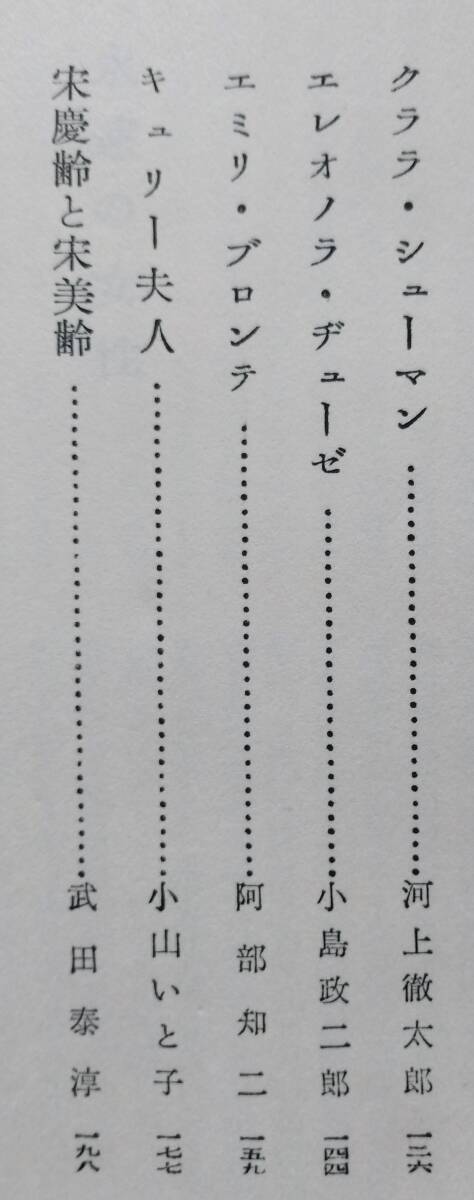 クララ・シューマン……………………河上徹太郎 一三六
エレオノラ・ヂューゼ……………………小島政二郎 一四四
エミリ・ブロンテ……………………阿部知二 一五九
キュリー夫人……………………小山いと子 一七七
宋慶齢と宋美齢……………………武田泰淳 一九八